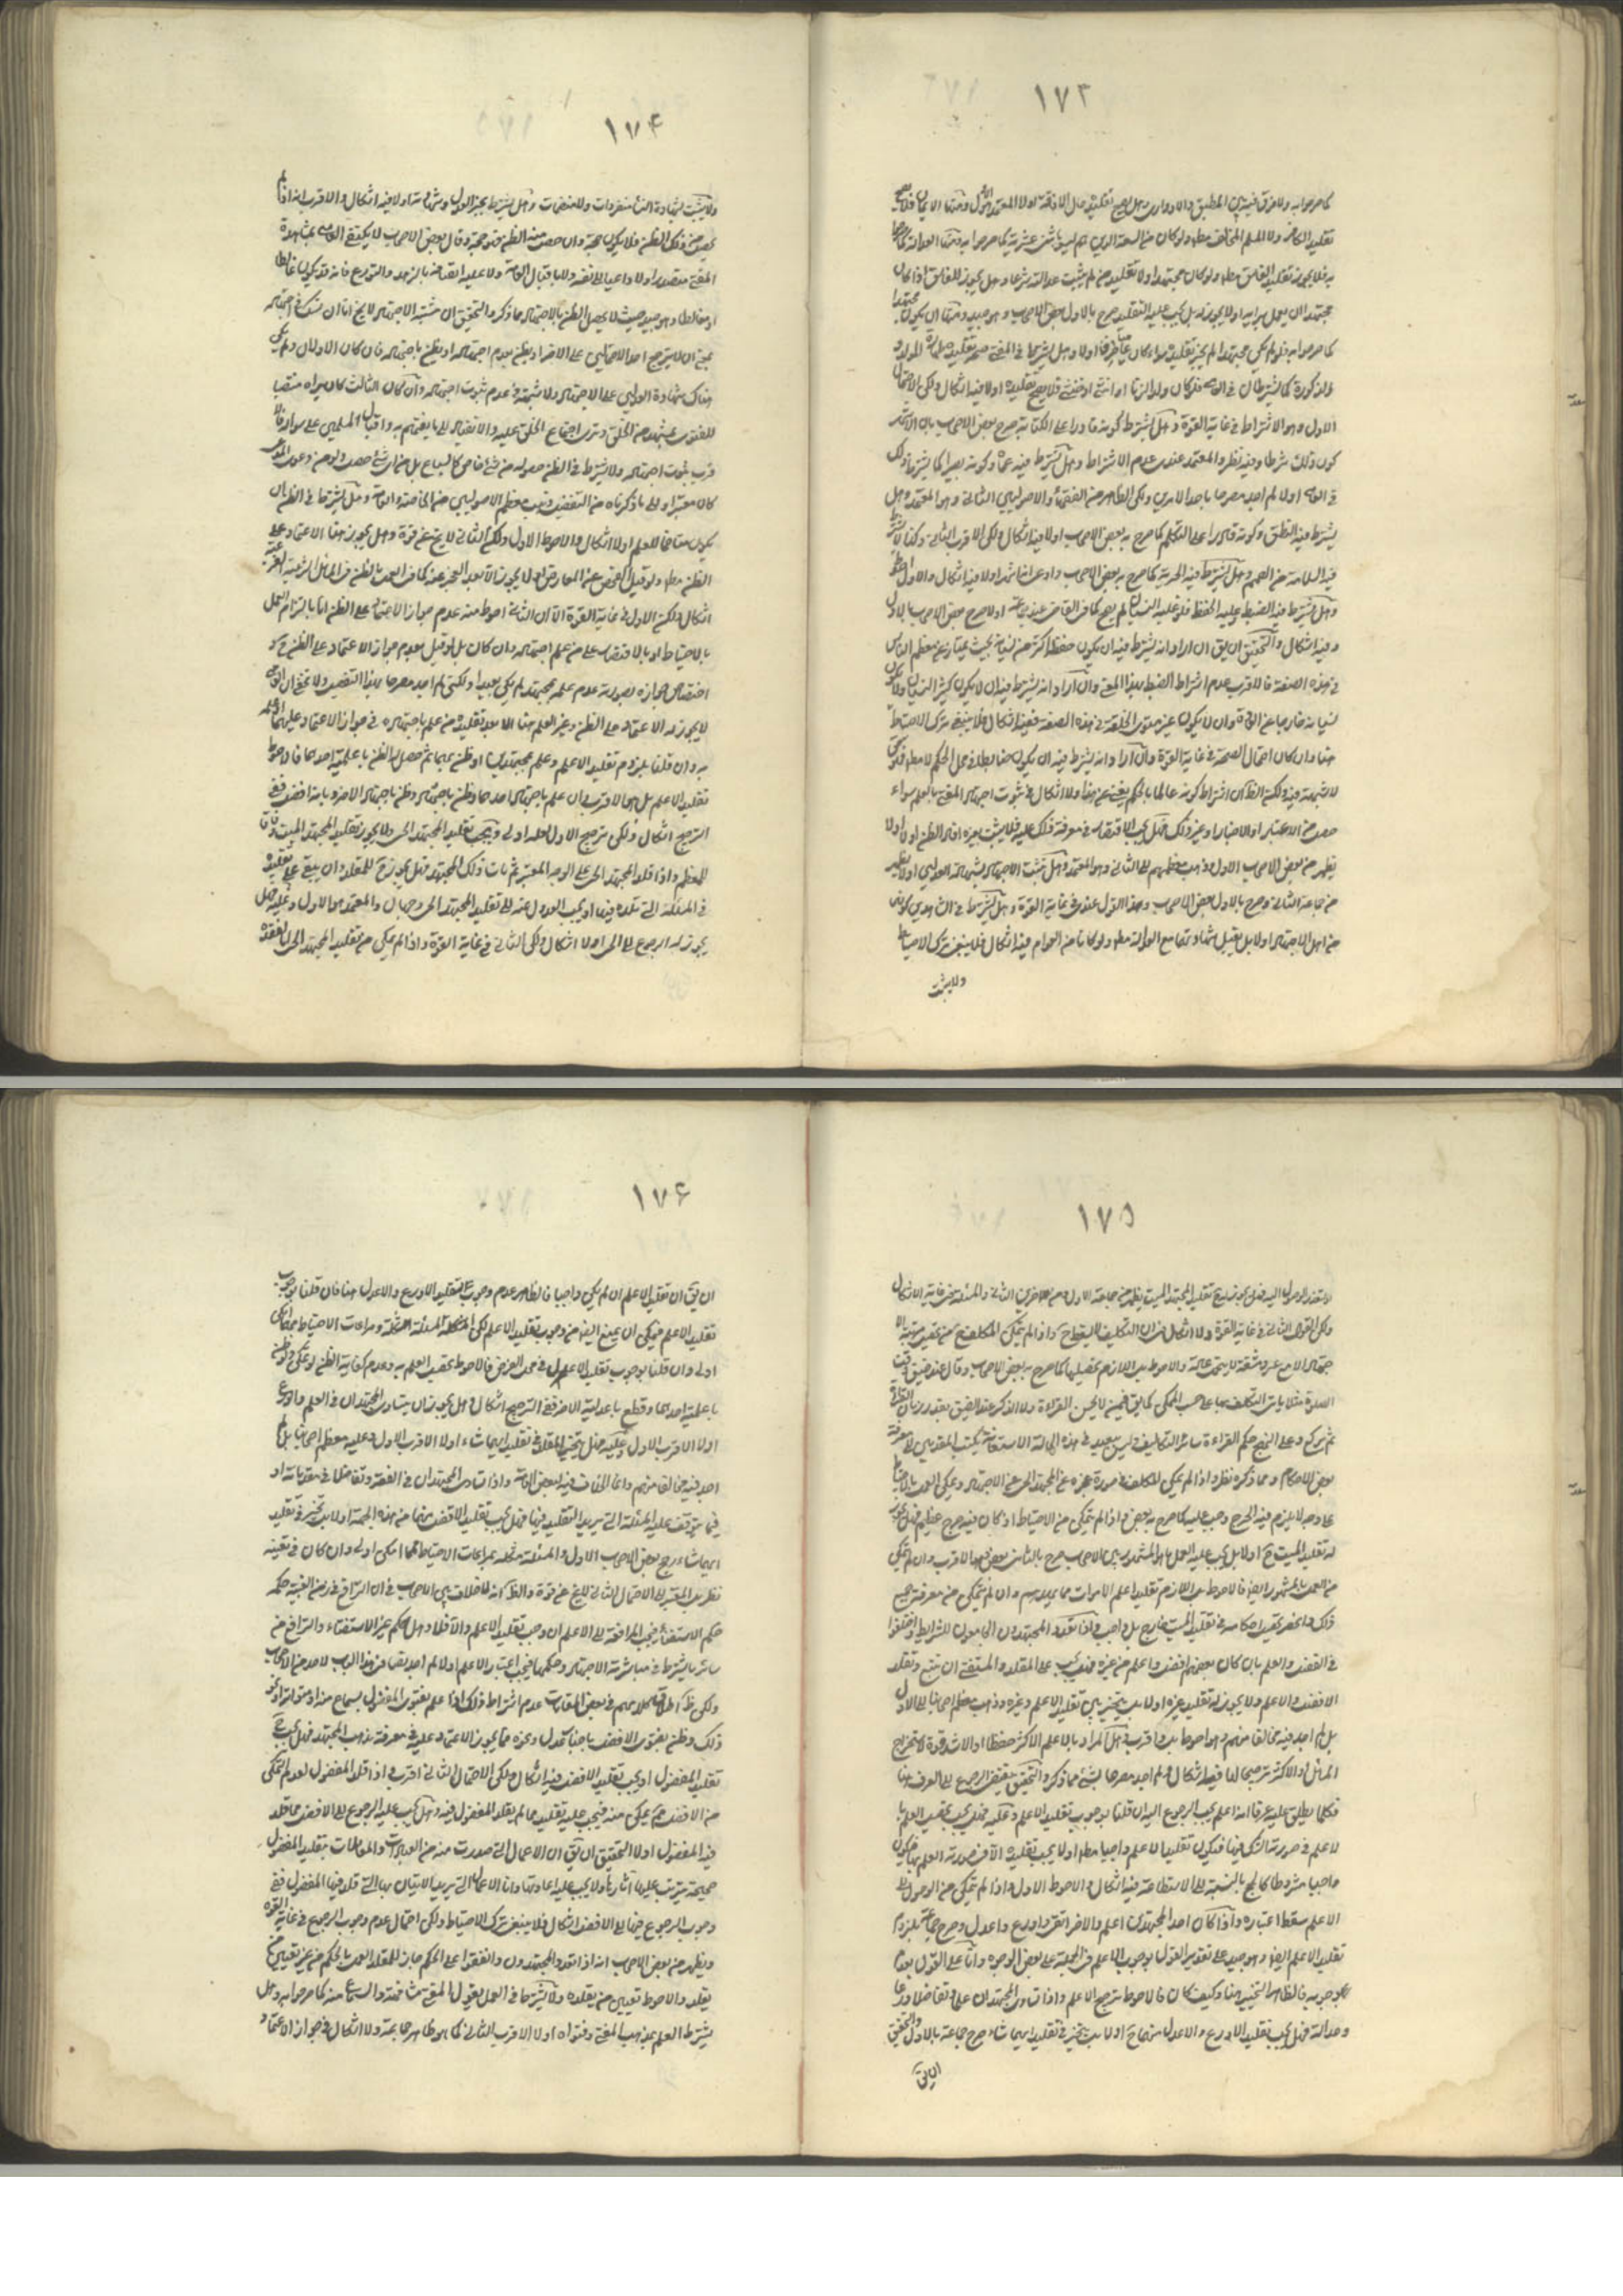 ١٧٣
كما صرحوا به ولا فرق فيه بين المطبق والادواري وهل يصح تقليده حال الافاقة اولا المعتمد الاول ومنها الايمان فلا يصح
تقليد الكافر ولا المسلم المخالف مطلقا ولو كان من الشيعة الذين هم ليسوا باثنى عشرية كما صرحوا به ومنها العدالة كما صرحوا
به فلا يجوز تقليد الفاسق مطلقا ولو كان مجتهدا ولا تقليد من لم يثبت عدالته شرعا وهل يجوز للفاسق اذا كان
مجتهدا ان يعمل برايه اولا يجوز له بل يجب عليه التقليد صرح بالاول بعض الاصحاب وهو جيد ومنها ان يكون مجتهدا
كما صرحوا به فلو لم يكن مجتهدا لم يجز تقليده سواء كان عاميا صرفا اولا وهل يشترط في المفتي صحة تقليده طهارة المولد و
الاول وهو الاشتراط في غاية القوة وهل يشترط كونه قادرا على الكتابة صرح بعض الاصحاب بان الاشهر
كون ذلك شرطا وفيه نظر والمعتمد عندي عدم الاشتراط وهل يشترط فيه عدم العمى وكونه بصيرا كما يشترط ذلك
في القاضي اولا لم اجد مصرحا باحد الامرين ولكن الظاهر من الفقهاء والاصوليين الثاني وهو المعتمد وهل
يشترط فيه النطق وكونه قادرا على التكلم كما صرح به بعض الاصحاب اولا فيه اشكال ولكن الاقرب الثاني وكذا لا يشترط
فيه السلامة من الصمم وهل يشترط فيه الحرية كما صرح به بعض الاصحاب وادعى انه اشهر اولا فيه اشكال والاول احوط
وهل يشترط فيه الضبط وغلبة الحفظ فلو غلبه النسيان لم يصح كما في القاضي عند جماعة اولا صرح بعض الاصحاب بالاول
وفيه اشكال والتحقيق ان يق ان اراد انه يشترط فيه ان يكون حفظه اكثر من نسيانه بحيث يمتاز عن معظم الناس
في هذه الصفة فالاقرب عدم اشتراط الضبط بهذا المعنى وان اراد انه يشترط فيه ان لا يكون كثير النسيان ولا يكون
نسيانه خارجا عن العادة وان لا يكون عن مستوى الخلقة في هذه الصفة ففيه اشكال فلا ينبغي ترك الاحتياط
هنا وان كان احتمال الصحة في غاية القوة وان اراد انه يشترط فيه ان يكون ضابطا في محل الحكم لا مطلقا فلو كان
لا شبهة فيه ولكن الظاهر ان اشتراط كونه عالما بالحكم يغني عن هذا ولا اشكال في ثبوت اجتهاد المفتي بالعلم سواء
حصل من الاعتبار او الاخبار او غير ذلك وهل يجب الاقتصار في معرفة ذلك عليه فلا يثبت بغيره افاد الظن اولا
يظهر من بعض الاصحاب الاول وذهب معظمهم الى الثاني وهو المعتمد وهل يثبت الاجتهاد بشهادة العدلين اولا يظهر
من جماعة الثاني وصرح بالاول بعض الاصحاب وهذا القول عندي في غاية القوة وهل يشترط في الشاهدين كونهما
من اهل الاجتهاد اولا بل يقبل شهادتهما مع العدالة مطلقا ولو كانا من العوام فيه اشكال فلا ينبغي ترك الاحتياط
ولا يثبت
١٧٤
ولا يثبت بشهادة النساء منفردات ولا منضمات وهل يشترط بخبر العدل وشهادته اولا فيه اشكال والاقرب انه اذا لم
يحصل من ذلك الظن فلا يكون حجة وان حصل منه الظن فهو حجة وقال بعض الاصحاب لا يكتفي العامي بمشاهدة
المفتي متصدرا ولا داعيا الى نفسه ولا باقبال العامة ولا عليه اتصافه بالزهد والتورع فانه قد يكون غالطا
او مغالطا وهو جيد حيث لا يحصل الظن بالاجتهاد مما ذكر والتحقيق ان مشتبه الاجتهاد لا يخ اما ان نشك في اجتهاده
بمعنى ان لا يترجح احد الاحتمالين على الاخر او يظن بعدم اجتهاده او يظن باجتهاده فان كان الاولان ولم يكن
هناك شهادة العدلين على الاجتهاد ولا شبهة في عدم ثبوت اجتهاده وان كان الثالث كان يراه منتصبا
للفتوى بمشهد من الخلق وترى اجتماع الخلق عليه والانقياد الى ما يفتيهم به واقبال المسلمين على سؤاله فالا
قرب ثبوت اجتهاده ولا يشترط في الظن حصوله من شيء خاص كالسماع بل من اي شيء حصل ولو من دعوى المدعي
كان معتبرا والى ما ذكرناه من التفصيل ذهب معظم الاصوليين من الخاصة والعامة وهل يشترط في الظن ان
يكون متاخما للعلم اولا اشكال والاحوط الاول ولكن الثاني لا يخ عن قوة وهل يجوز هنا الاعتماد على
اشكال ولكن الاول في غاية القوة الا ان الثاني احوط منه عدم جواز الاعتماد على الظن اما بالتزام العمل
بالاحتياط او بالاقتصار على من علم اجتهاده وان كان بل لو قيل بعدم جواز الاعتماد على الظن ح و
اختصاص جوازه بصورة عدم علمه بمجتهد لم يكن بعيدا ولكني لم اجد مصرحا بهذا التفصيل ولا يخفى ان العامي
لا يجوز له الاعتماد على الظن وغير العلم هنا الا بعد تقليده من علم باجتهاده في جواز الاعتماد عليهما
به وان قلنا بلزوم تقليد الاعلم وعلم بمجتهدين او ظن بهما ثم حصل الظن باعلمية احدهما فالاحوط
تقليد الاعلم بل هو الاقرب وان علم باجتهاد احدهما وظن باجتهاد وظن باجتهاد الاخر وبانه افضل ففي
الترجيح اشكال ولكن ترجيح الاول لعله اولى ويجب تقليد المجتهد الحي ولا يجوز تقليد المجتهد الميت وفاقا
للمعظم واذا قلد المجتهد الحي على الوجه المعتبر ثم مات ذلك المجتهد فهل يجوز ح للمقلد ان يبقى على تقليده
في المسئلة التي قلده فيها او يجب العدول عنه الى تقليد المجتهد الحي وجهان والمعتمد هو الاول وعليه هل
يجوز له الرجوع الى الحي اولا اشكال ولكن الثاني في غاية القوة واذا لم يمكن من تقليد المجتهد الحي لفقده
١٧٥
او تعذر الوصول اليه فهل يجوز له ح تقليد المجتهد الميت يظهر من جماعة الاول ومن اخرين الثاني والمسئلة في غاية الاشكال
ولكن القول الثاني في غاية القوة ولا اشكال في ان التكليف لا يسقط ح واذا لم يتمكن المكلف من تحصيل مرتبة الا
جتهاد الا مع عسر ومشقة لا يتحمل عادة والاحوط بل اللازم تحصيلها كما صرح به بعض الاصحاب وقال عند ضيق وقت
الصلوة مثلا ياتي التكليف بها على حسب الممكن كما يق فيمن لا يحسن القراءة ولا الذكر عند الضيق بقدر زمان القراءة
ثم يركع وعلى النهج حكم القراءة سائر التكاليف وليس ببعيد في هذه الحالة الاستعانة بكتب المتقدمين الى معرفة
بعض الاحكام وما ذكره نظر واذا لم يمكن المكلف في صورة عجزه عن المجتهد الحي عن الاجتهاد ويمكن العمل بالاحتياط
على وجه لا يلزم فيه الحرج وجب عليه كما صرح به بعض واذا لم يتمكن من الاحتياط او كان فيه حرج عظيم فهل يجوز
له تقليد الميت ح اولا بل يجب عليه العمل بما هو المشهور بين الاصحاب صرح بالثاني بعض وهو الاقرب وان لم يمكن
من العمل بالمشهور ايضا فالاحوط بل اللازم تقليد اعلم الاموات
في الفضل والعلم بان كان بعضهم افضل واعلم من غيره فهل يجب على المقلد والمستفتي ان يتبع ويقلد
الافضل والاعلم ولا يجوز له تقليد غيره اولا بل يتخير بين تقليد الاعلم وغيره وذهب معظم اصحابنا الى الاول
بل لم اجد فيه مخالفا منهم وهو احوط بل واقرب وهل المراد بالاعلم الاكثر حفظا او الاشد قوة لاستخراج
المسائل او الاكثر ترجيحا لها فيه اشكال ولم اجد مصرحا بشيء مما ذكر والتحقيق يقتضي الرجوع الى العرف هنا
فكلما يطلق عليه عرفا انه اعلم يجب الرجوع اليه ان قلنا بوجوب تقليد الاعلم وعليه فهل يجب تحصيل العلم با
لاعلم في صورة الشك فيها فيكون تقليد الاعلم واجبا مطلقا اولا يجب تقليده الا في صورة العلم بها فيكون
واجبا مشروطا كالحج بالنسبة الى الاستطاعة فيه اشكال والاحوط الاول واذا لم يتمكن من الوصول الى
الاعلم سقط اعتباره واذا كان احد المجتهدين اعلم والاخر اتقى واورع واعدل وصرح جماعة بلزوم
تقليد الاعلم ايضا وهو جيد على تقدير القول بوجوب الاعلم في الجملة على بعض الوجوه واما على القول بعدم
وجوبه فالظاهر التخيير هنا وكيف كان فالاحوط ترجيح الاعلم واذا تساوى المجتهدان علما وتفاضلا ورعا
وعدالة فهل يجب تقليد الاورع والاعدل منهما ح اولا بل يتخير في تقليد ايهما شاء صرح جماعة بالاول والتحقيق
ان يق
١٧٦
ان يق ان تقليد الاعلم ان لم يكن واجبا فالظاهر عدم وجوب تقليد الاورع والاعدل هنا وان قلنا بوجوب
تقليد الاعلم فيمكن ان يمنع ايضا من وجوب تقليد الاعلم لكن المسئلة مشكلة ومراعات الاحتياط مهما امكن
اولى وان قلنا بوجوب تقليد الاعلم في محل الفرض فالاحوط تحصيل العلم به وعدم كفاية الظن لو تمكن ولو ظن
باعلمية احدهما وقطع باعدلية الاخر ففي الترجيح اشكال وهل يجوز ان يتساوى المجتهدان في العلم والورع
اولا الاقرب الاول وعليه فهل يتخير المقلد في تقليد ايهما شاء اولا الاقرب الاول وعليه معظم اصحابنا بل لم
اجد فيه مخالفا منهم وانما الخلاف فيه لبعض العامة واذا تساوى المجتهدان في الفقه وتفاضلا في مقدماته او
فيما يتوقف عليه المسئلة التي يريد التقليد فيها فهل يجب تقليد الافضل منهما من هذه الجهة اولا بل يتخير في تقليد
ايهما شاء رجح بعض الاصحاب الاول والمسئلة مشكلة بمراعات الاحتياط مهما امكن اولى وان كان في تعينه
نظر بل المصير الى الاحتمال الثاني لا يخ عن قوة والظاهر انه لا خلاف بين الاصحاب في ان الترافع في زمن الغيبة حكمه
حكم الاستفتاء فيجب المرافعة الى الاعلم ان وجب تقليد الاعلم والا فلا وهل حكم غير الاستفتاء والترافع من
سائر ما يشترط فيه مباشرة الاجتهاد وحكمهما فيجب اعتبار الاعلم اولا لم اجد نصا في هذا الباب لاحد من الاصحاب
ولكن ظاهر اطلاق كلامهم في بعض المقامات عدم اشتراط ذلك اذا علم بفتوى المفضول بسماع منه او متواتر او نحو
ذلك وظن بفتوى الافضل باخبار عدل ونحوه مما يجوز الاعتماد عليه في معرفة مذهب المجتهد فهل يجب ح
تقليد المفضول او يجب تقليد الافضل فيه اشكال ولكن الاحتمال الثاني اقرب واذا قلد المفضول لعدم التمكن
من الافضل ثم تمكن منه فيجب عليه تقليده فيما لم يقلد المفضول فيه وهل يجب عليه الرجوع الى الافضل فيما قلد
فيه المفضول اولا التحقيق ان يق ان الاعمال التي صدرت منه من العبادات والمعاملات بتقليد المفضول
صحيحة يترتب عليها اثارها ولا يجب عليه اعادتها واما الاعمال التي يريد الاتيان بها التي قلد فيها المفضول ففي
وجوب الرجوع فيها الى الافضل اشكال فلا ينبغي ترك الاحتياط ولكن احتمال عدم وجوب الرجوع في غاية القوة
ويظهر من بعض الاصحاب انه اذا تعدد المجتهدون واتفقوا على الحكم جاز للمقلد العمل بالحكم من غير تعيين من
يقلده والاحوط تعيين من يقلده ولا يشترط في العمل بقول المفتي مشافهته والسماع منه كما صرحوا به وهل
يشترط العلم بمذهب المفتي وفتواه اولا الاقرب الثاني كما هو ظاهر جماعة ولا اشكال في جواز الاعتماد